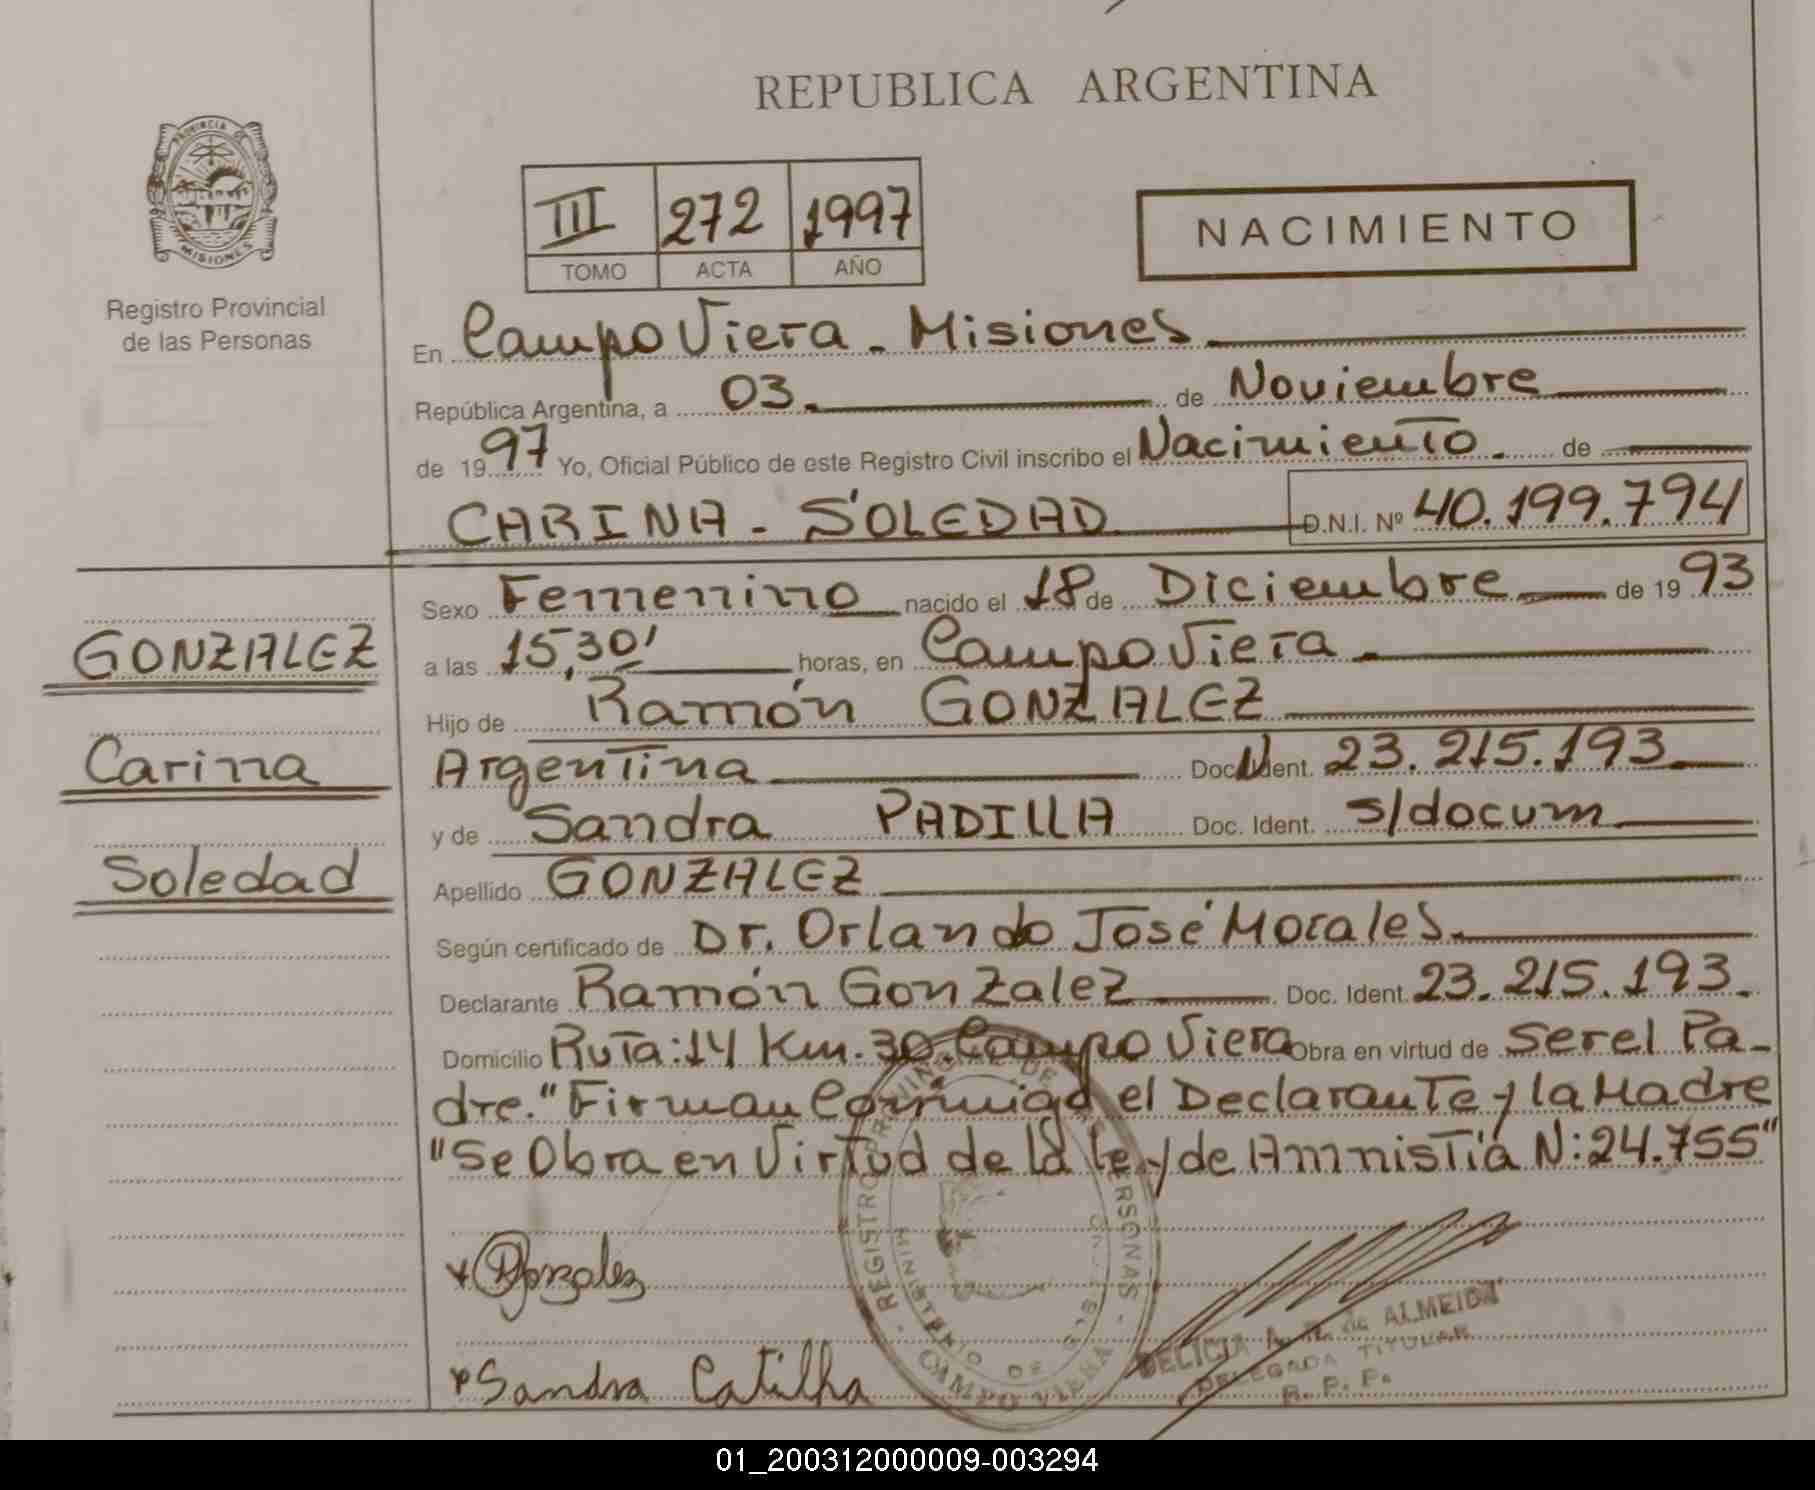 REPUBLICA ARGENTINA
PROVINCIA DE
MISIONES
Registro Provincial
de las Personas
III 272 1997
TOMO ACTA AÑO
NACIMIENTO
En Campo Viera - Misiones
República Argentina, a 03. de Noviembre
de 1997 Yo, Oficial Público de este Registro Civil inscribo el Nacimiento. de
CARINA - SOLEDAD D.N.I. Nº 40.199.794
Sexo Femenino nacido el 18 de Diciembre de 1993
a las 15,30' horas, en Campo Viera
Hijo de Ramón GONZALEZ
Argentina Doc. Ident. 23.215.193
y de Sandra PADILLA Doc. Ident. s/docum
Apellido GONZALEZ
Según certificado de Dr. Orlando José Morales
Declarante Ramón Gonzalez Doc. Ident. 23.215.193.
Domicilio Ruta:14 Km.30. Campo Viera Obra en virtud de Ser el Pa-
dre." Firman Conmigo el Declarante y la Madre
"Se Obra en Virtud de la ley de Amnistía N:24.755"
GONZALEZ
Carina
Soledad
Gonzalez
Sandra Catilha
REGISTRO PROVINCIAL DE LAS PERSONAS
CAMPO VIERA
DELICIA A. R. de ALMEIDA
DELEGADA TITULAR
R. P. P.
01_200312000009-003294